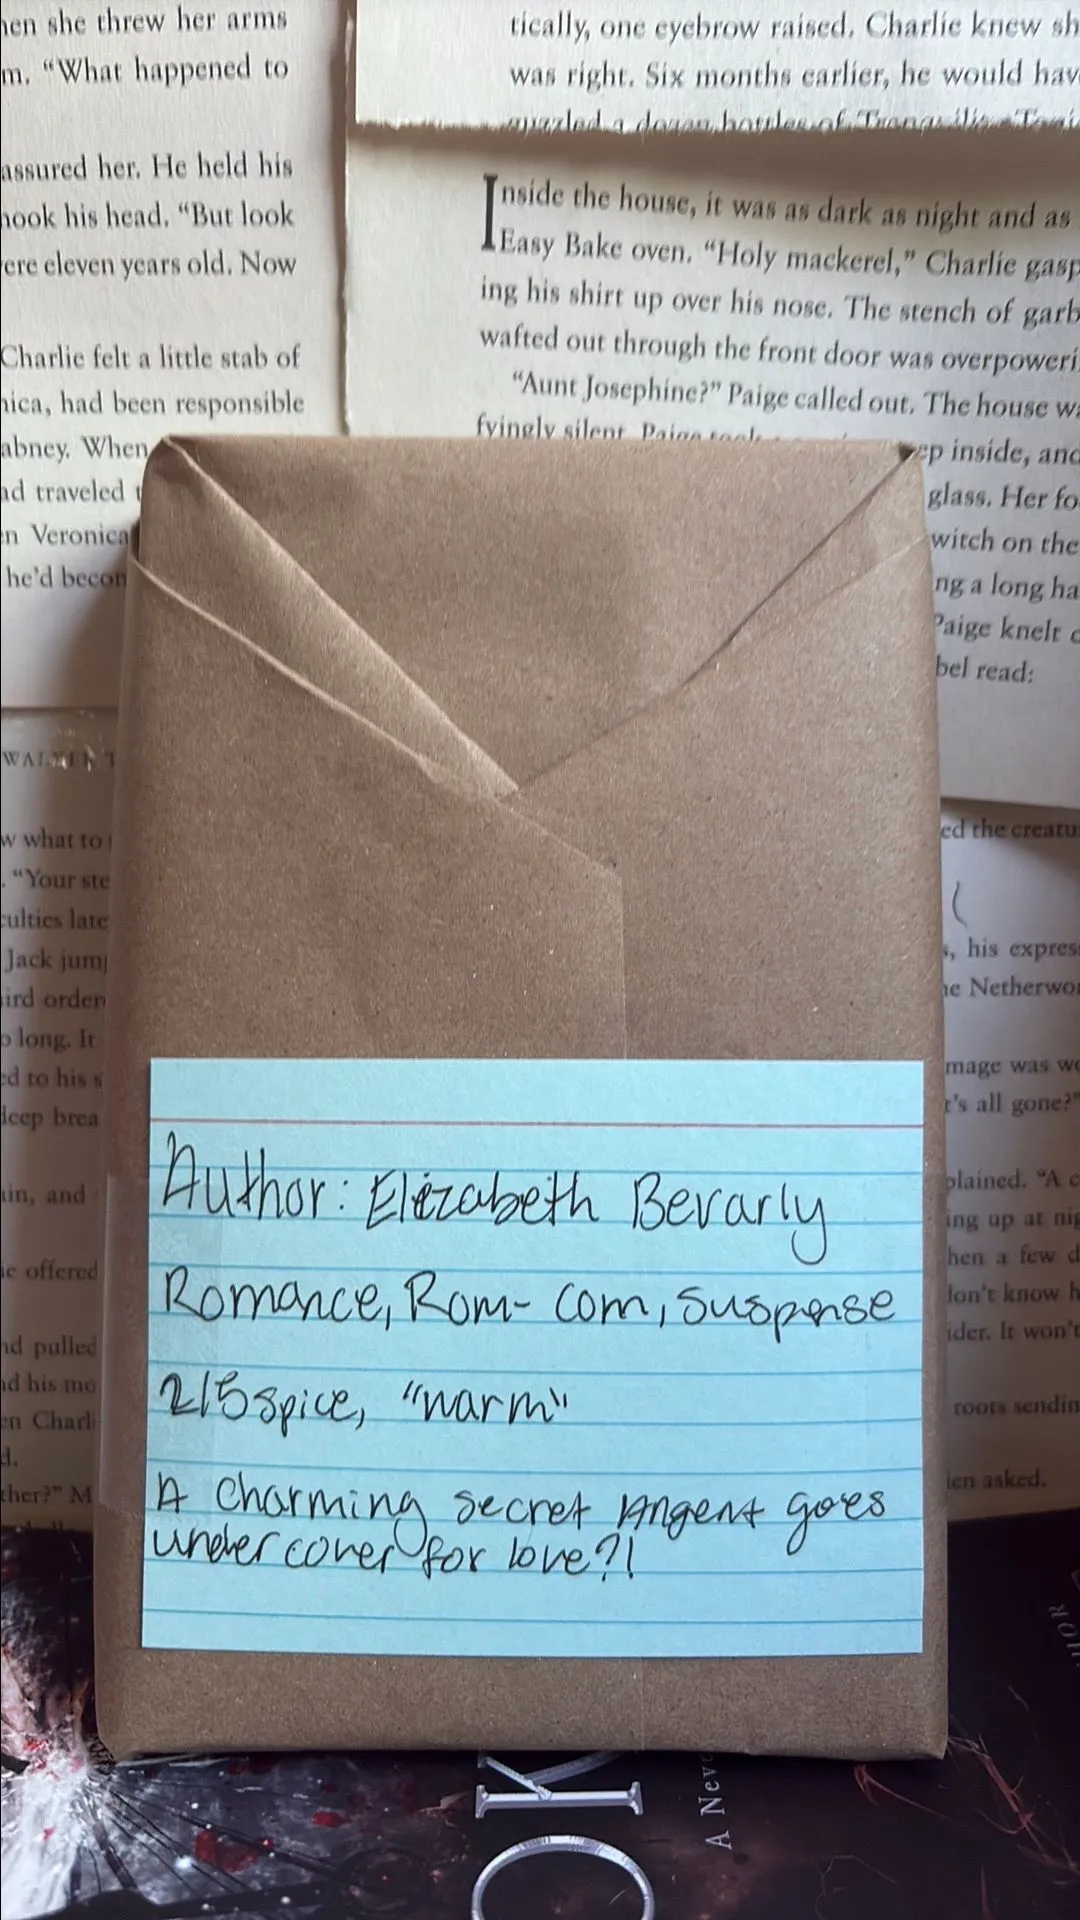 hen she threw her arms
m. “What happened to
assured her. He held his
hook his head. “But look
ere eleven years old. Now
Charlie felt a little stab of
nica, had been responsible
abney. When
ad traveled
en Veronica
he’d becom
tically, one eyebrow raised. Charlie knew sh
was right. Six months earlier, he would hav
guzzled a dozen bottles of
Inside the house, it was as dark as night and as
Easy Bake oven. “Holy mackerel,” Charlie gasp
ing his shirt up over his nose. The stench of garb
wafted out through the front door was overpoweri
“Aunt Josephine?” Paige called out. The house wa
fyingly silent. Paige took
ep inside, and
glass. Her fo
witch on the
ng a long ha
Paige knelt c
bel read:
w what to
. “Your ste
culties late
Jack jump
ird order
o long. It
ed to his s
deep brea
ain, and
he offered
nd pulled
nd his mo
en Charli
d.
ther?” M
ed the creatu
s, his express
he Netherwor
mage was wo
t’s all gone?”
plained. “A c
ing up at nig
hen a few d
don’t know h
ider. It won’t
roots sendin
ien asked.
Author: Elizabeth Bevarly
Romance, Rom-com, suspense
2/5 spice, "warm"
A charming secret Angent goes
undercover for love?!
OK
A Nov